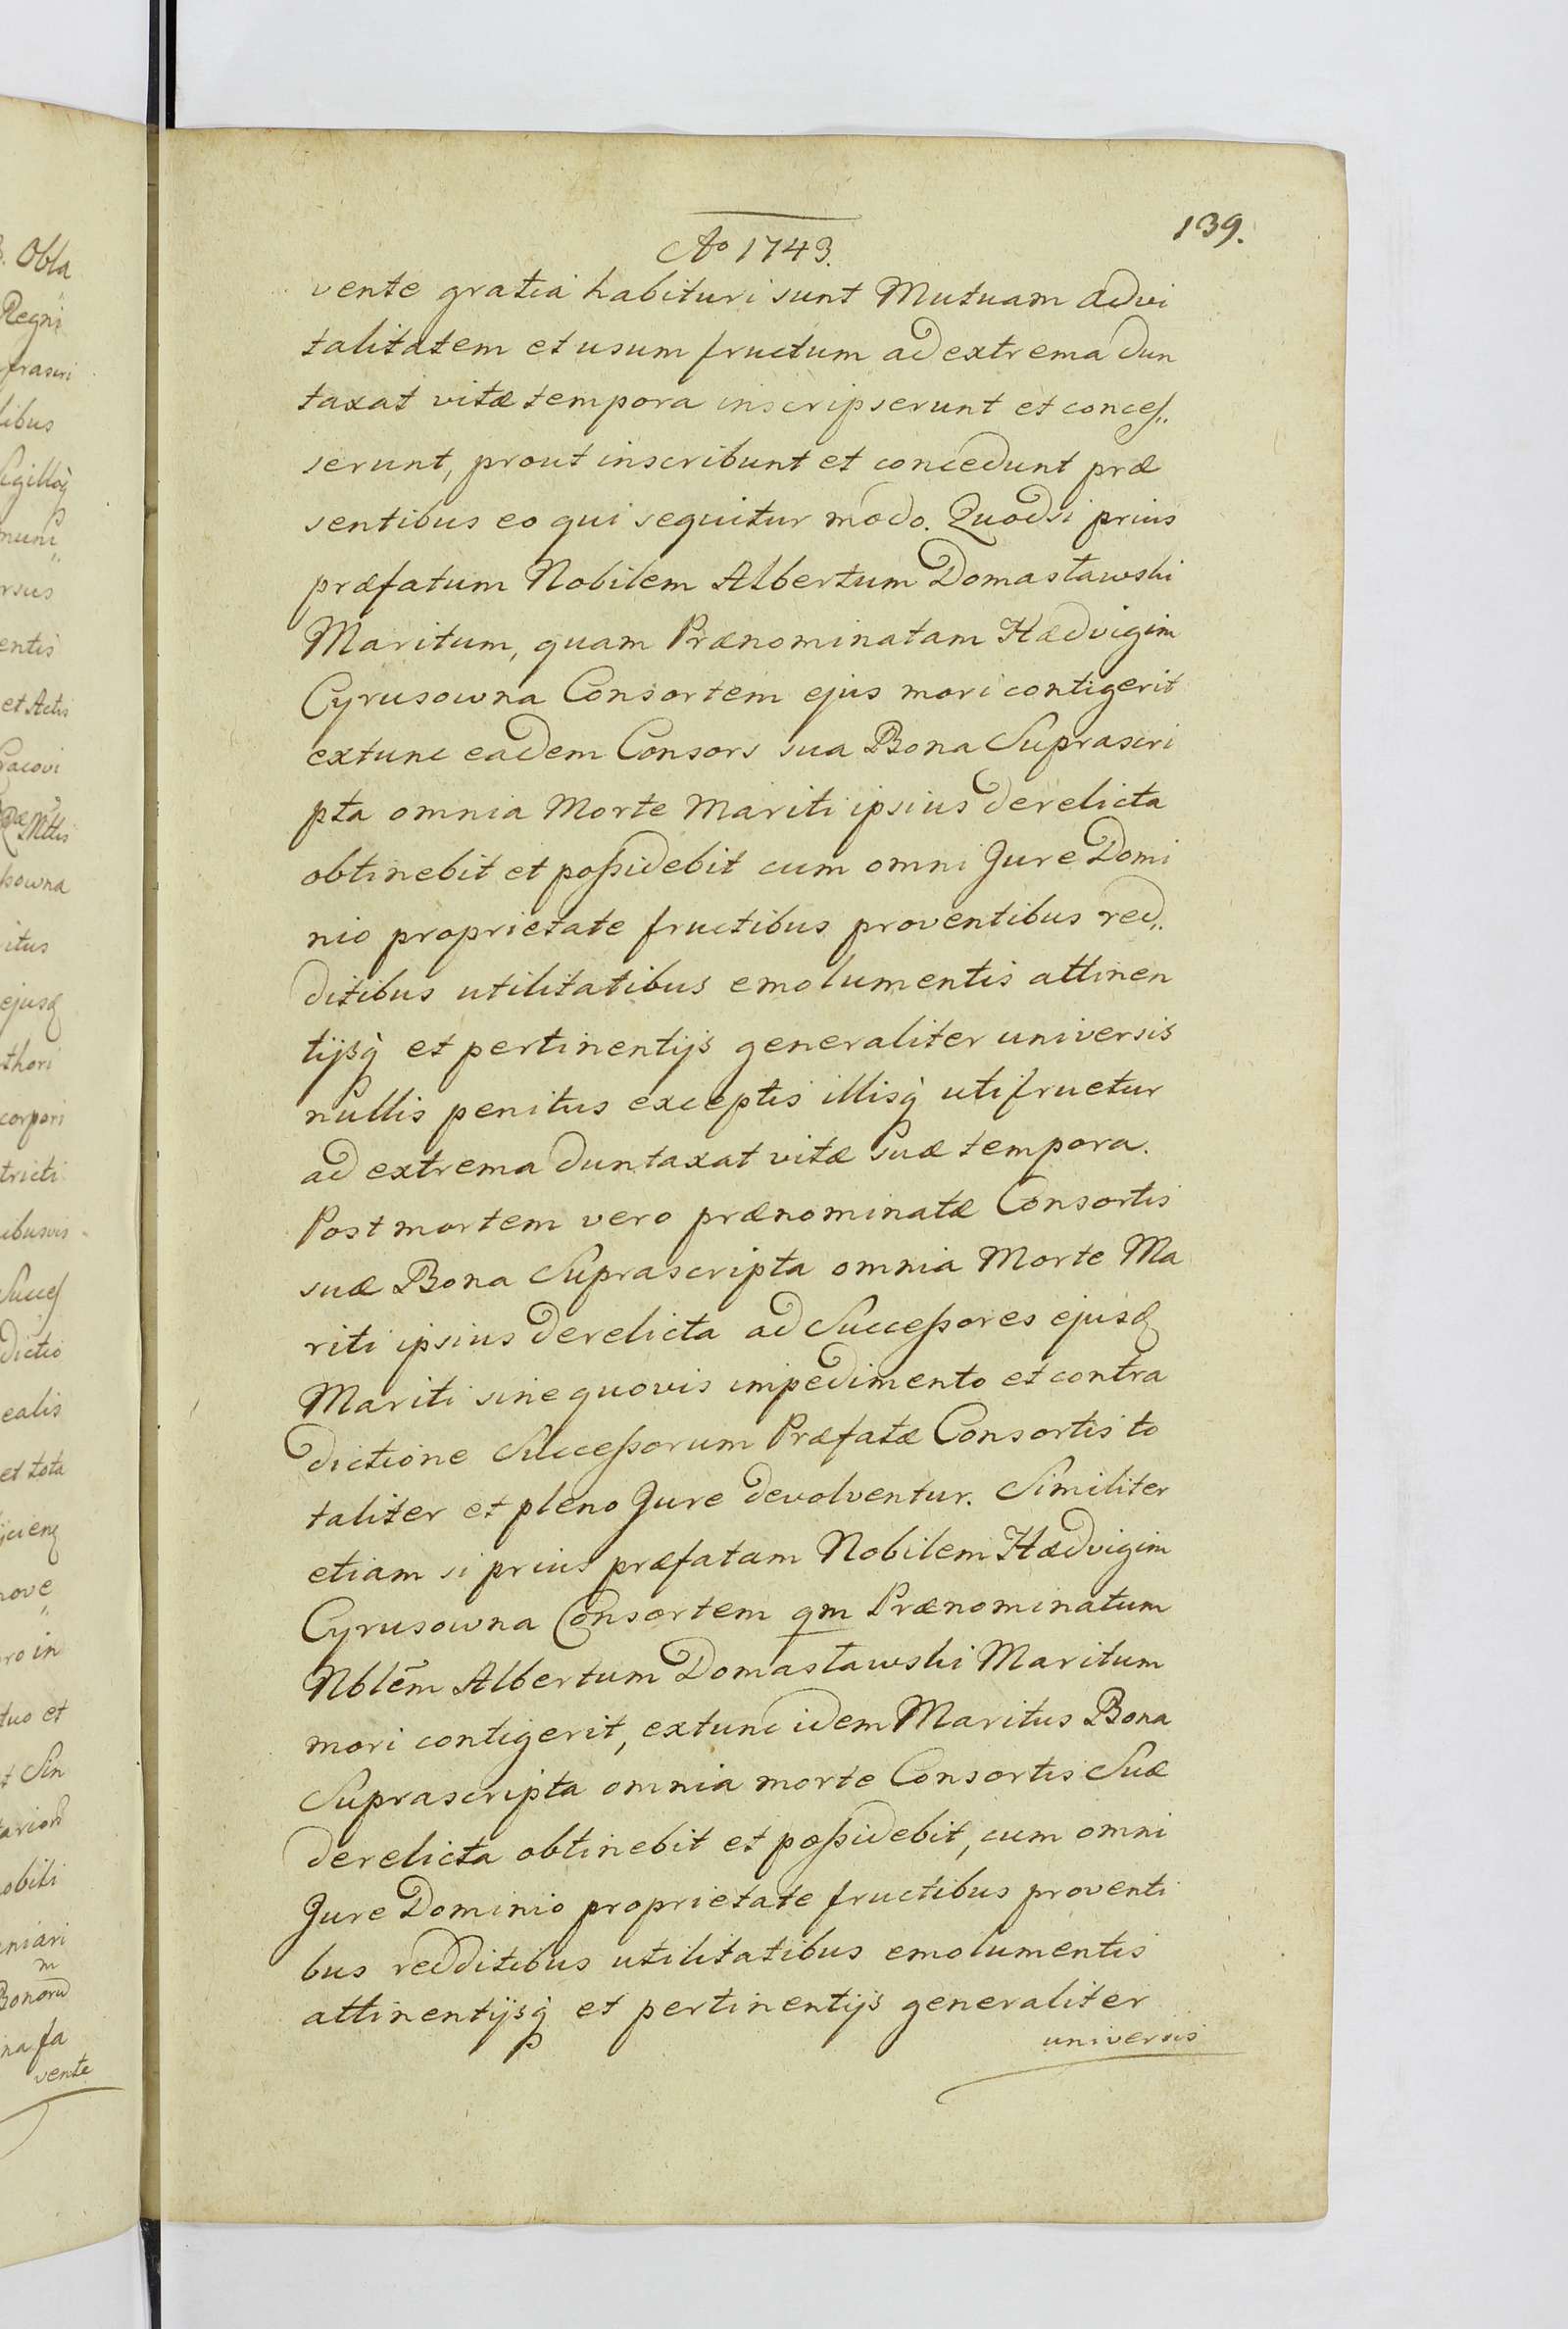 139.
Ao 1743.
vente gratia habituri sunt Mutuam advi
talitatem et usum fructum ad extrema dun
taxat vitæ tempora inscripserunt et conces„
serunt, prout inscribunt et concedunt præ
sentibus eo qui sequitur modo. Quodsi prius
præfatum Nobilem Albertum Domasławski
Maritum, quam Prænominatam Hædvigim
Cyrusowna Consortem ejus mori contigerit
extunc eadem Consors sua Bona Suprascri
pta omnia Morte Mariti ipsius derelicta
obtinebit et poßidebit cum omni Jure Domi
nio proprietate fructibus proventibus red„
ditibus utilitatibus emolumentis attinen
tijsq et pertinentijs generaliter universis
nullis penitus exceptis illisq utifruetur
ad extrema duntaxat vitæ suæ tempora.
Post mortem vero prænominatæ Consortis
suæ Bona Suprascripta omnia Morte Ma
riti ipsius derelicta ad Succeßores ejusd
Mariti sine quovis impedimento et contra
dictione Succeßorum Præfatæ Consortis to
taliter et pleno Jure devolventur. Similiter
etiam si prius præfatam Nobilem Hædvigim
Cyrusowna Consortem qm Prænominatum
Nblēm Albertum Domasławski Maritum
mori contigerit, extunc idem Maritus Bona
Suprascripta omnia morte Consortis Suæ
derelicta obtinebit et poßidebit, cum omni
Jure Dominio proprietate fructibus proventi
bus redditibus utilitatibus emolumentis
attinentijsq et pertinentijs generaliter
universis